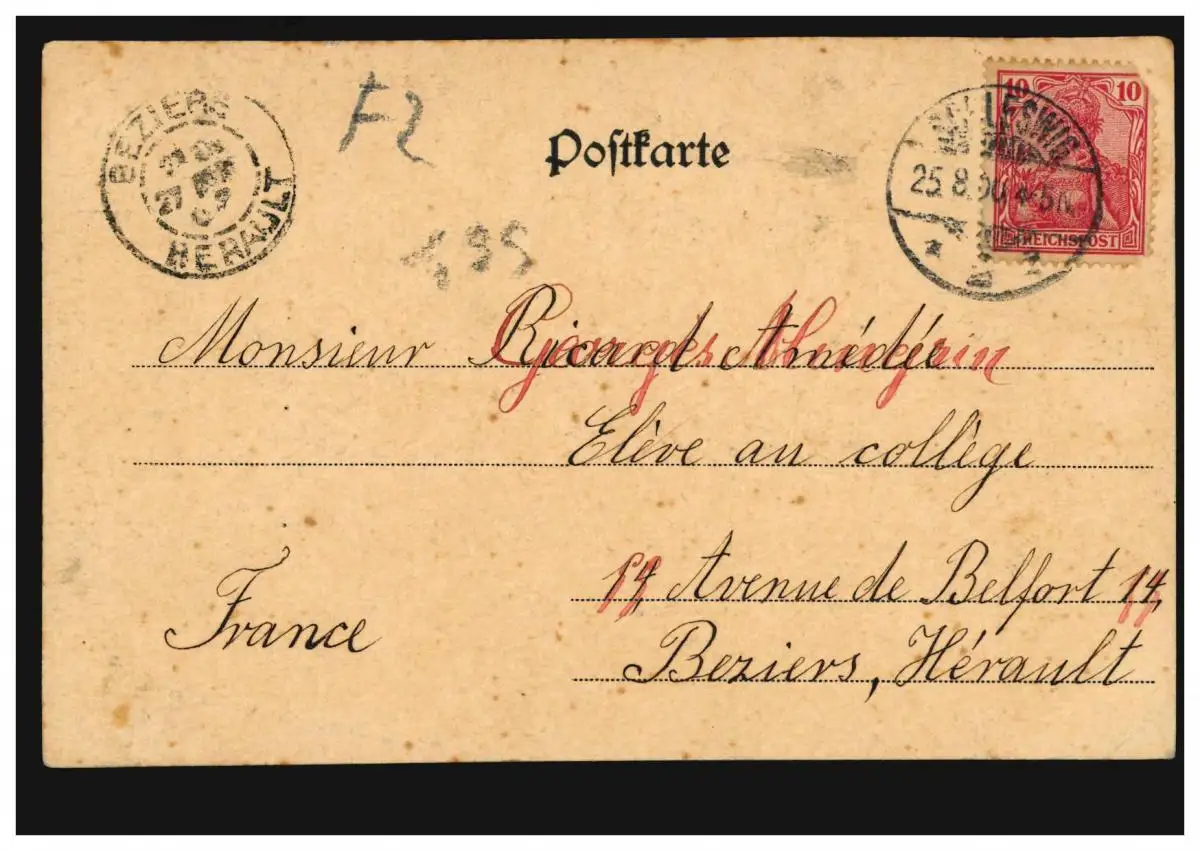 BEZIERS
HERAULT
F2
Postkarte
SCHLESWIG
25.8.00 4-5N.
10 10
REICHSPOST
1,95
Monsieur Ricard Amédée
Georges
Elève au collège
14, Avenue de Belfort 14,
France
Beziers, Hérault